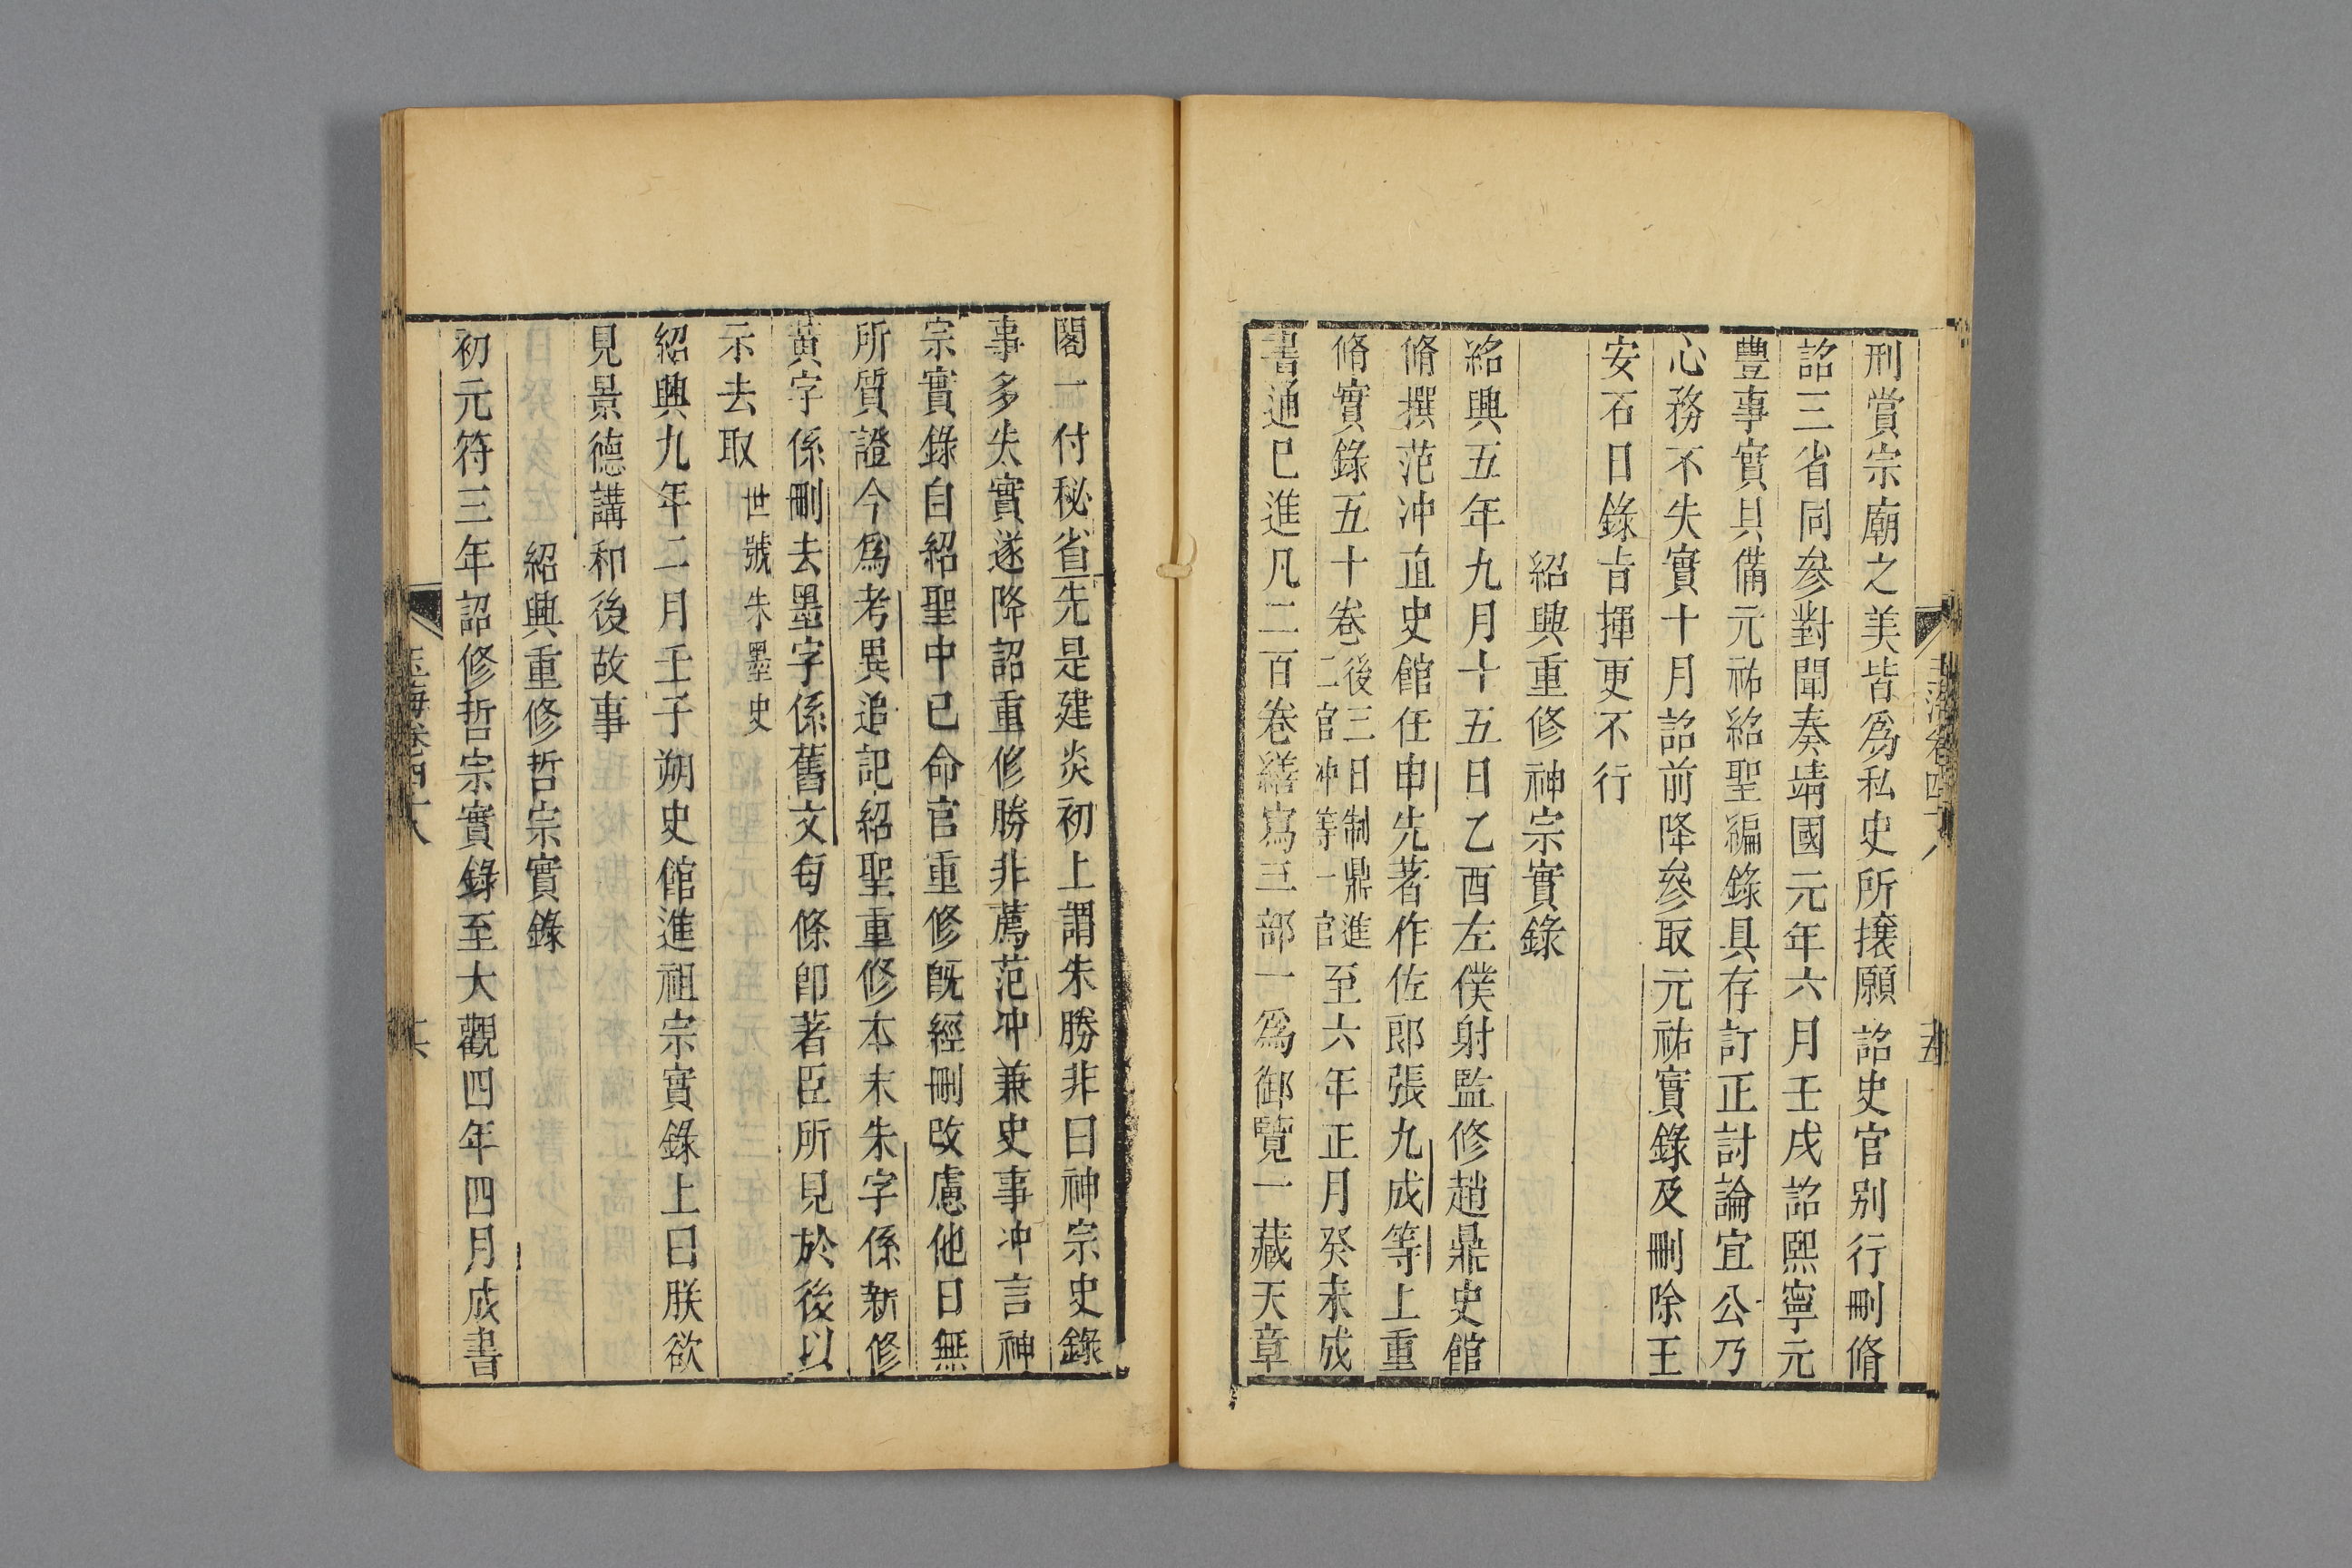 刑賞宗廟之美皆爲私史所攘願詔史官别行刪脩
詔三省同參對聞奏靖國元年六月壬戌詔熙寧元
豐事實具備元祐紹聖編錄具存訂正討論宜公乃
心務不失實十月詔前降參取元祐實錄及刪除王
安石日錄旨揮更不行
紹興重修神宗實錄
紹興五年九月十五日乙酉左僕射監修趙鼎史館
脩撰范冲直史館任申先著作佐郎張九成等上重
脩實錄五十卷後三日制鼎進二官冲等一官至六年正月癸未成
書通已進凡二百卷繕寫三部一爲御覽一藏天章
閣一付秘省先是建炎初上謂朱勝非曰神宗史錄
事多失實遂降詔重修勝非薦范冲兼史事冲言神
宗實錄自紹聖中已命官重修旣經刪改慮他日無
所質證今爲考異追記紹聖重修本末朱字係新修
黃字係刪去墨字係舊文每條卽著臣所見於後以
示去取世號朱墨史
紹興九年二月壬子朔史館進祖宗實錄上曰朕欲
見景德講和後故事
紹興重修哲宗實錄
初元符三年詔修哲宗實錄至大觀四年四月成書